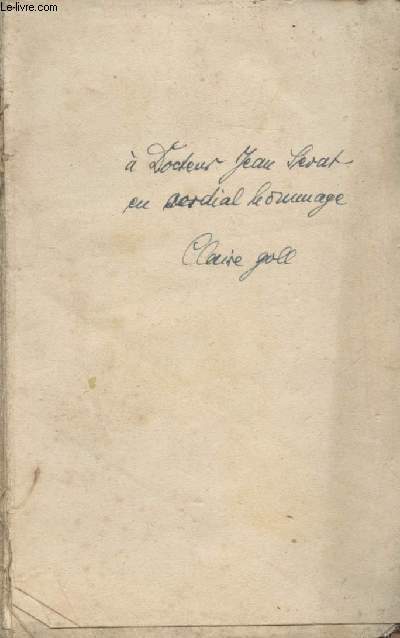 Le-livre.com
à Docteur Jean Serat
en cordial hommage
Claire Goll